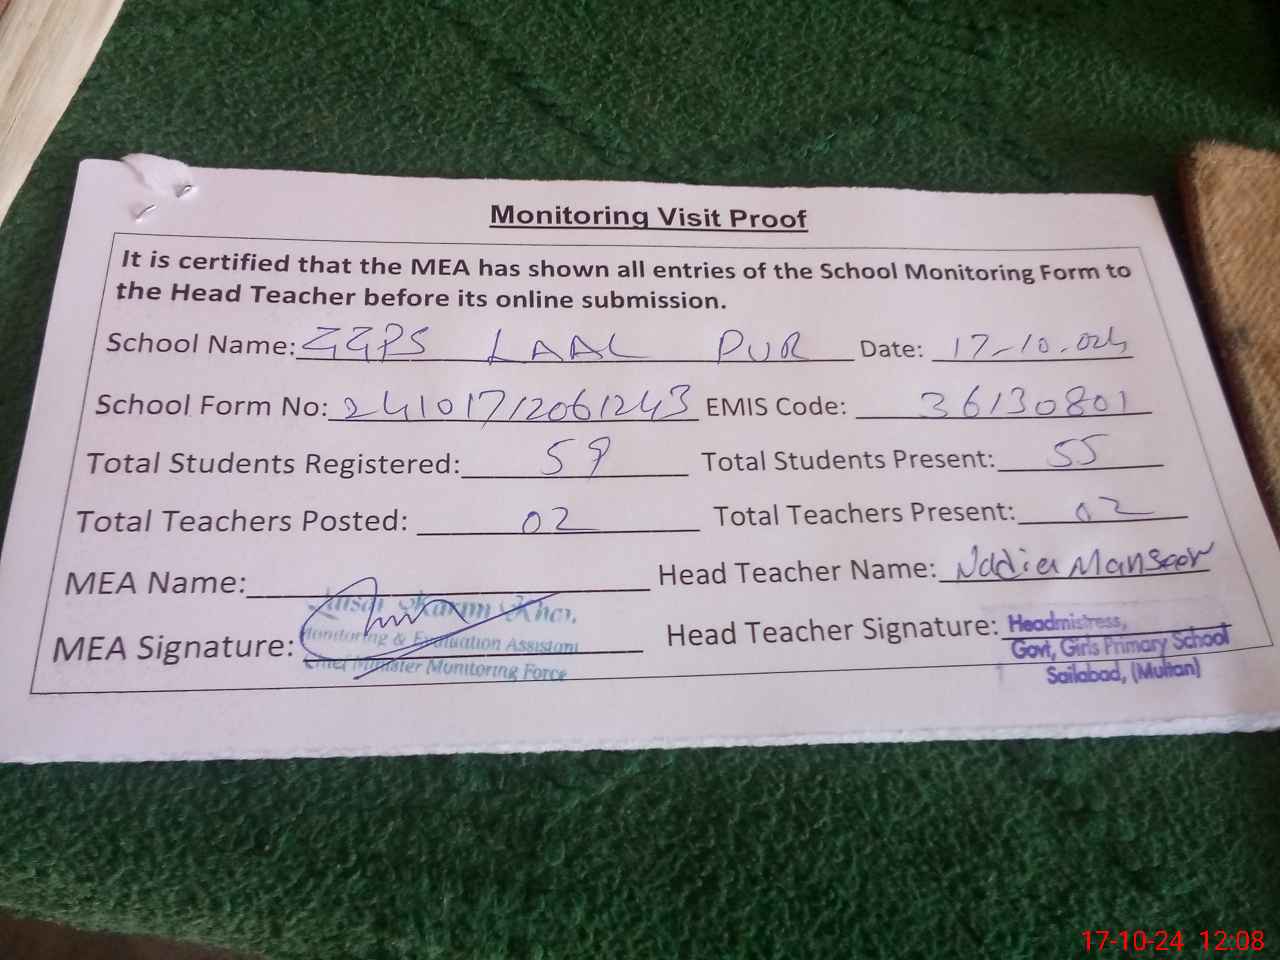 Monitoring Visit Proof
It is certified that the MEA has shown all entries of the School Monitoring Form to
the Head Teacher before its online submission.
School Name: GGPS LAAL PUR Date: 17-10-024
School Form No: 24101712061243 EMIS Code: 36130801
Total Students Registered: 59 Total Students Present: 55
Total Teachers Posted: 02 Total Teachers Present: 02
MEA Name: Head Teacher Name: Nadia Mansoor
Karim
MEA Signature: Monitoring & Evaluation Assistant Head Teacher Signature: Headmistress,
Chief Minister Monitoring Force Govt, Girls Primary School
Sailabad, (Multan)
17-10-24 12:08